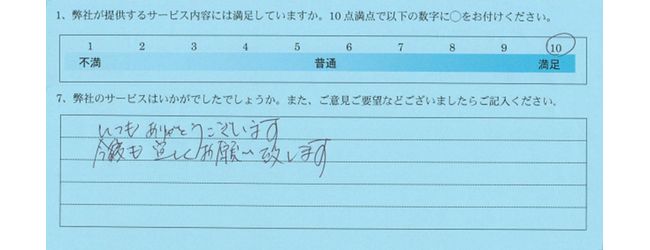 1、弊社が提供するサービス内容には満足していますか。10点満点で以下の数字に○をお付けください。
1 2 3 4 5 6 7 8 9 10
不満 普通 満足
7、弊社のサービスはいかがでしたでしょうか。また、ご意見ご要望などございましたらご記入ください。
いつも ありがとうございます
今後も 宜しくお願い致します